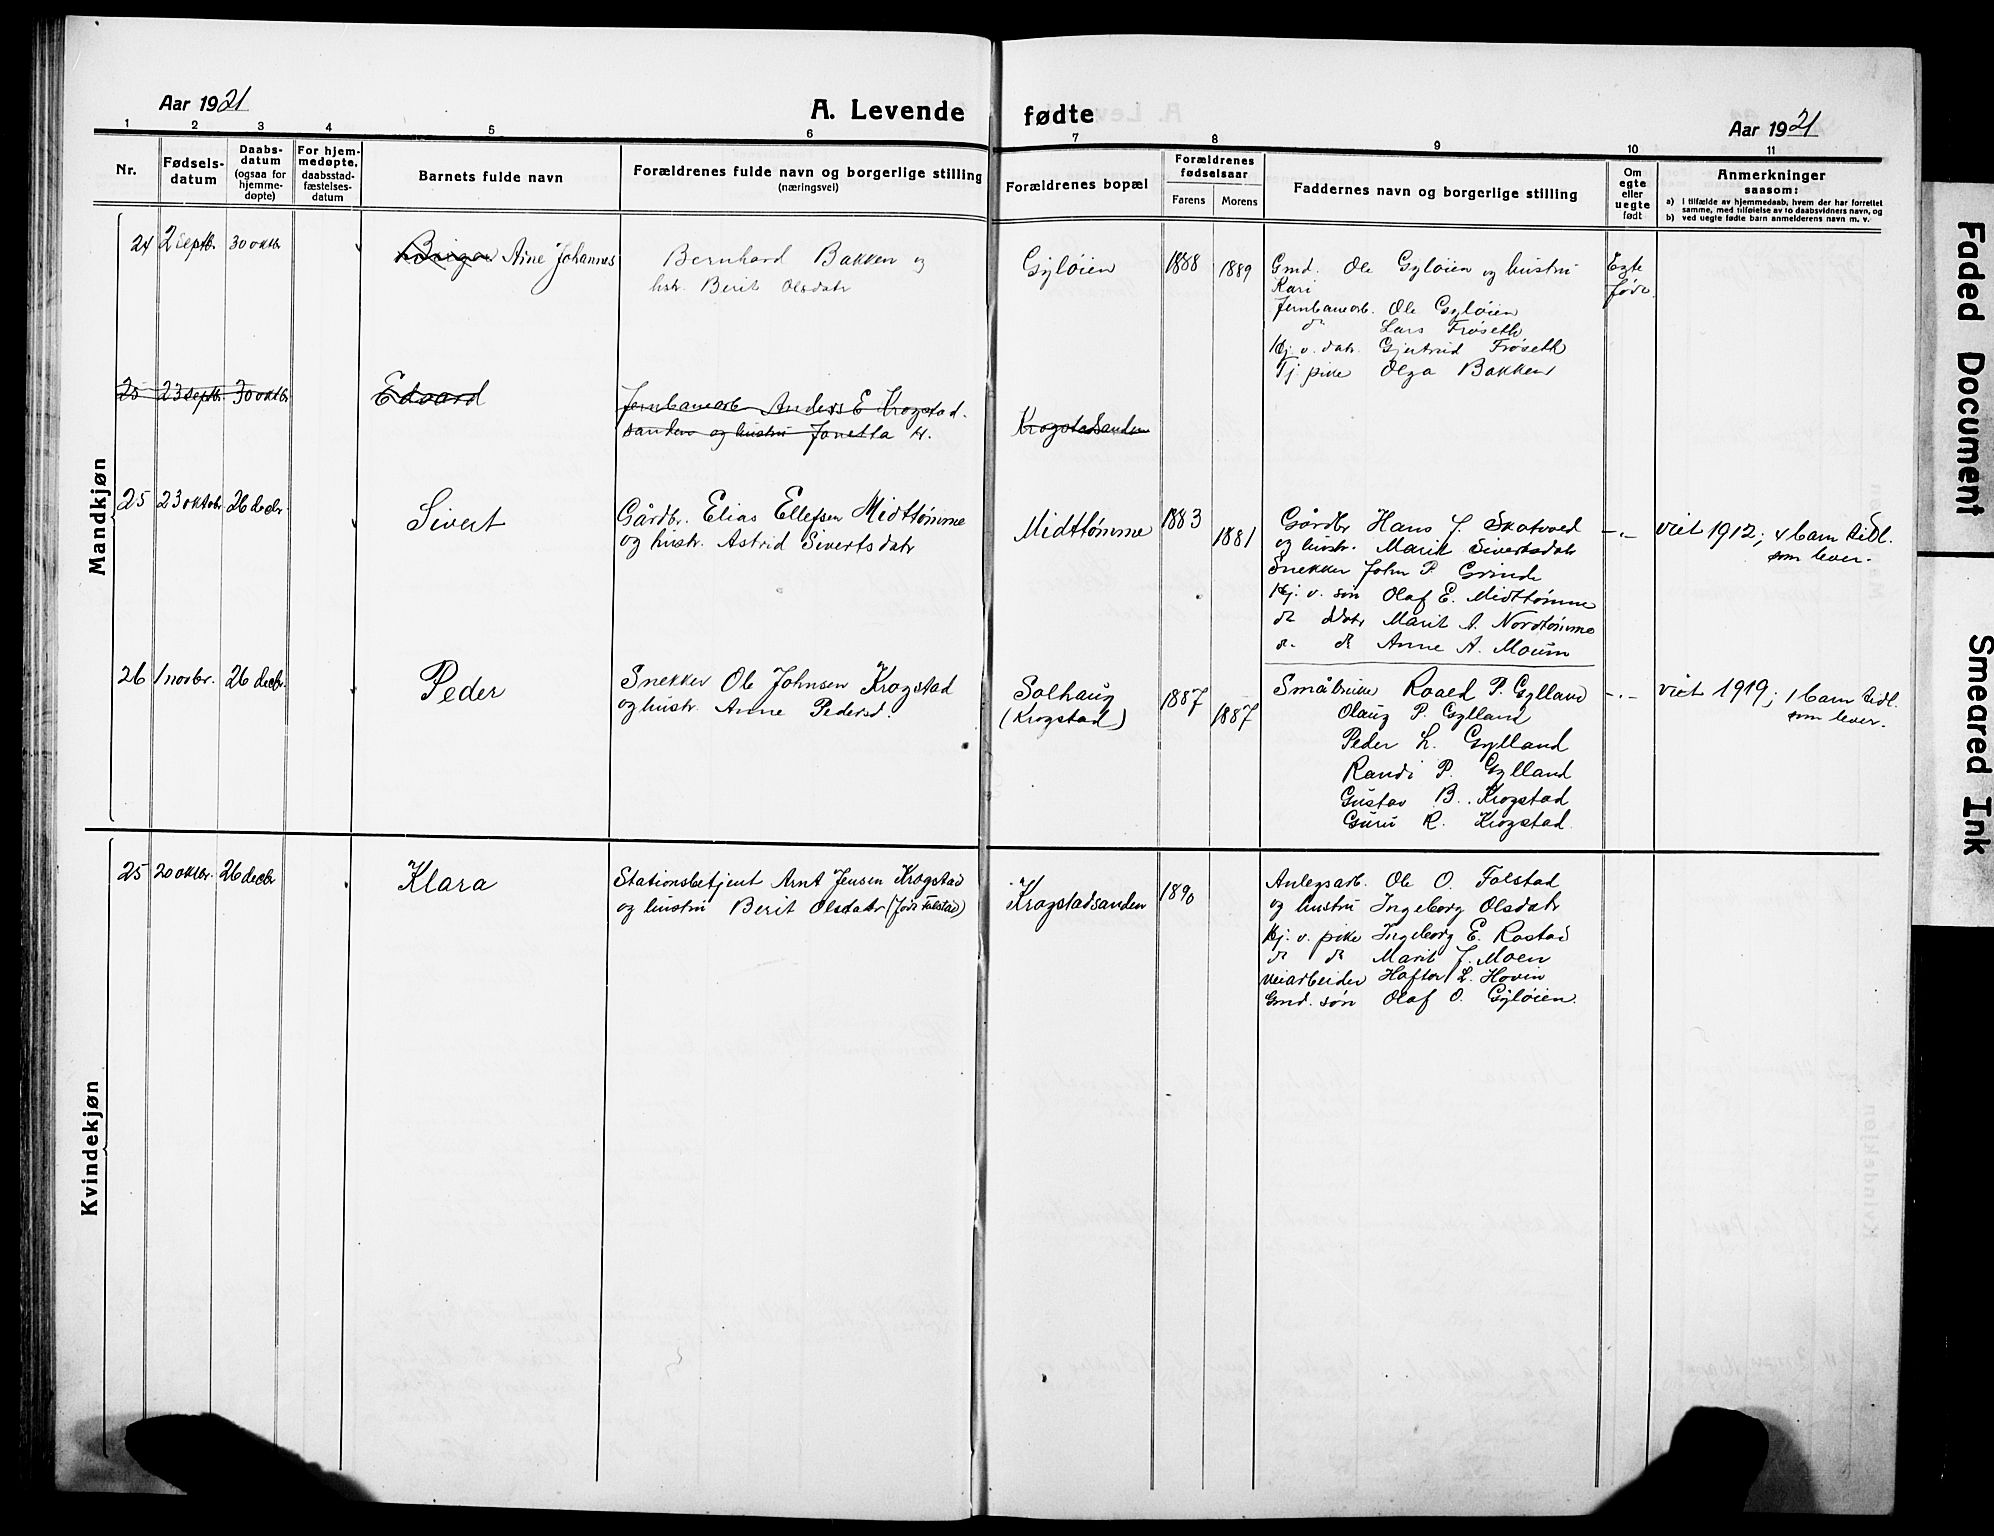 Aar 1921
A. Levende fødte
Aar 1921
1 2 3 4 5 6 7 8 9 10 11
Nr.
Fødselsdatum
Daabsdatum (ogsaa for hjemmedøpte)
For hjemmedøpte, daabsstadfæstelsesdatum
Barnets fulde navn
Forældrenes fulde navn og borgerlige stilling
(næringsvei)
Forældrenes bopæl
Forældrenes fødselsaar
Farens Morens
Faddernes navn og borgerlige stilling
Om egte eller uegte født
Anmerkninger
saasom:
a) I tilfælde av hjemmedaab, hvem der har forrettet
samme, med tilføielse av to daabsvidners navn, og
b) ved uegte fødte barn anmelderens navn m. v.
Mandkjøn
24 2 septb. 30 oktbr
Birger Arne Johannes
Bernhard Bakken og
hstr. Berit Olsdatr
Gyløien
1888 1889
Gmd. Ole Gyløien og hustru
Kari
Jernbanearb. Ole Gyløien
do Lars Frøseth
Hj. v. datr. Gjertrud Frøseth
Tj. pike Olga Bakken
Egte
født.
25 23 septb. 30 oktbr
Edvard
Jernbanearb Anders E Krogstad-
sanden og hustru Janetta H.
Krogstadsanden
25 23 oktobr 26 decbr.
Sivert
Gårdbr. Elias Ellefsen Midttømme
og hustr. Astrid Sivertsdatr
Midttømme
1883 1881
Gårdbr Hans J. Skotvold
og hustr. Marit Sivertsdatr
Snekker John P. Grinde
Hj. v. søn Olaf E. Midttømme
do datr Marit A. Nordtømme
do do Anne A. Moum
-"-
viet 1912; 4 barn tidl.
som lever.
26 1 novbr. 26 decbr.
Peder
Snekker Ole Johnsen Krogstad
og hustr. Anne Pedersd.
Solhaug
(Krogstad)
1887 1887
Småbruker Roald P. Gylland
Olaug P. Gylland
Peder L. Gylland
Randi P. Gylland
Gustav B. Krogstad
Guru R. Krogstad.
-"-
viet 1919; 1 barn tidl.
som lever.
Kvindekjøn
25 20 oktbr. 26 decbr
Klara
Stationsbetjent Arnt Jensen Krogstad
og hustru Berit Olsdatr (født Folstad)
Krogstadsanden
1890
Anlegsarb. Ole O. Folstad
og hustru Ingeborg Olsdatr
Hj. v. pike Ingeborg E. Rostad
do do Marit J. Moen
Veiarbeider Haftor L. Hovin
Gmd. søn Olaf O. Gyløien.
Faded Document
Smeared Ink